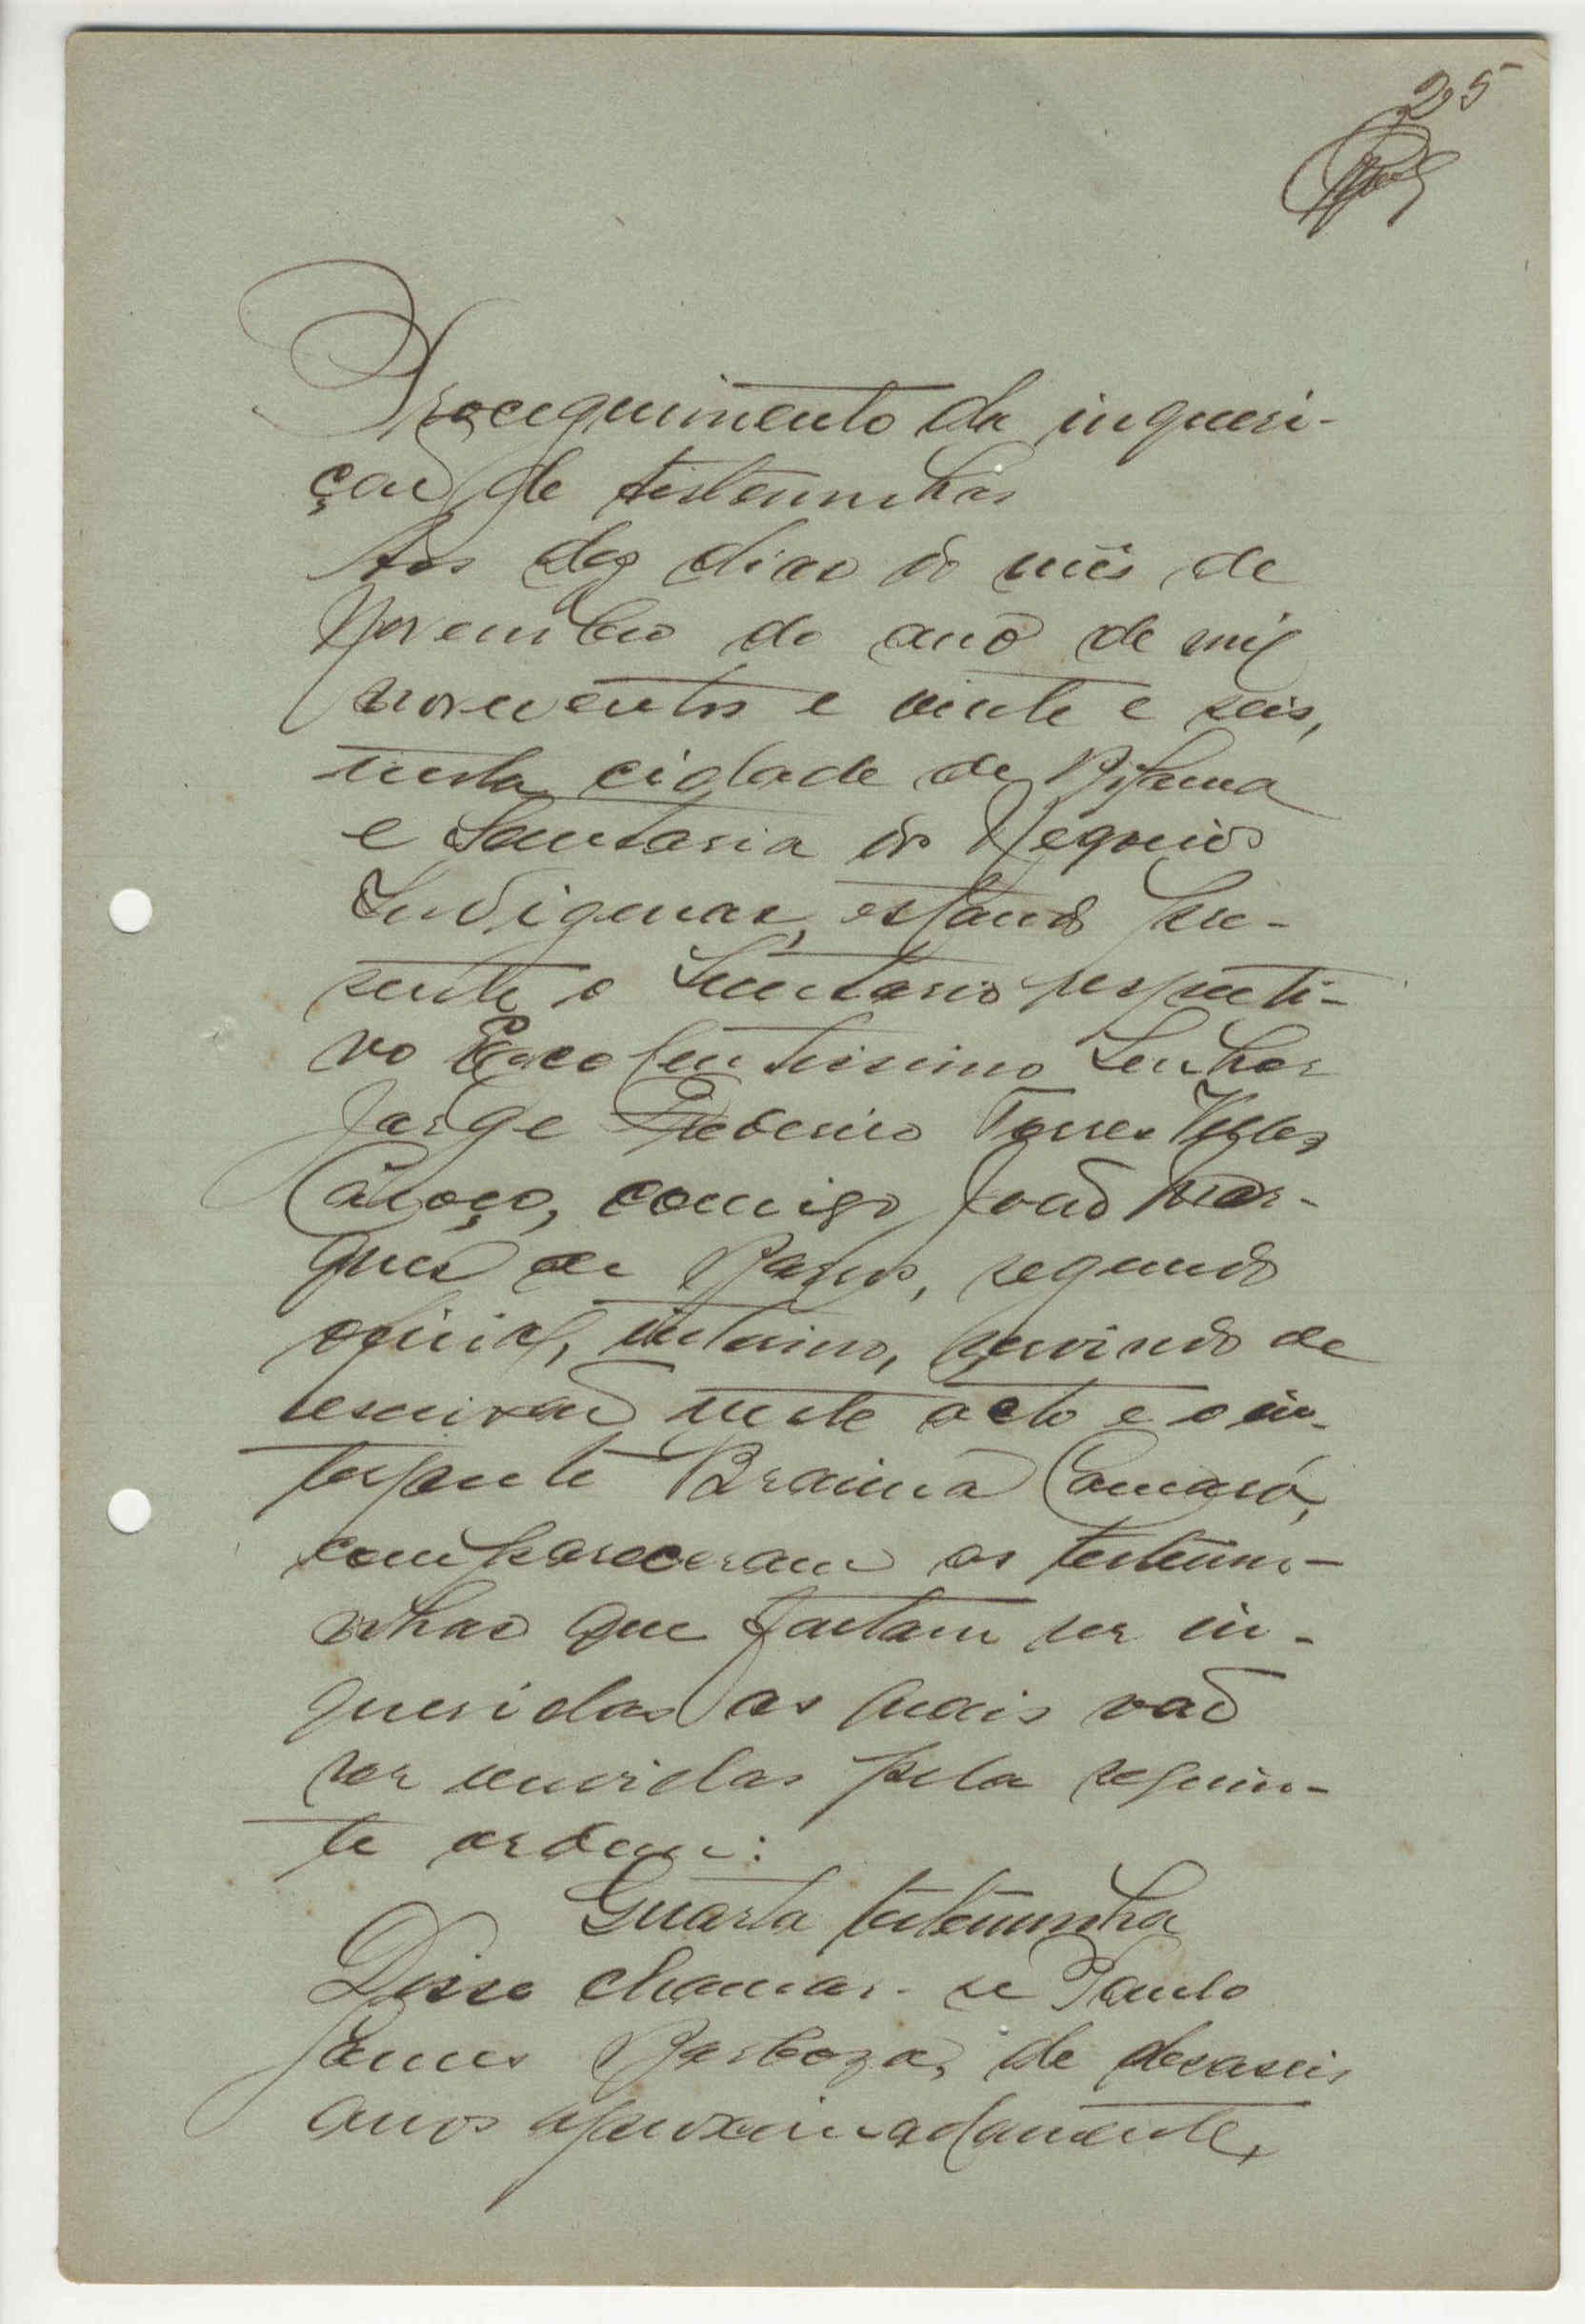 25
Procequimento da inqueri-
ção de testemunhas
Aos dez dias do mês de
Novembro do ano de mil
novecentos e vinte e seis,
nesta cidade de Bolama
e Secretaria dos Negocios
Indigenas, estando pre-
sente o Secretario respecti-
vo Excelentissimo Senhor
Jorge Frederico Torres Velez
Caroço, comigo João Mar-
ques de Barros, segundo
oficial, interino, servindo de
escrivão neste acto e o in-
terprete Braima Camará,
compareceram as testemu-
nhas que faltam ser in-
queridas as quais vão
ser ouvidas pela seguin-
te ordem:
Quarta testemunha
Disse chamar-se Paulo
James Barboza, de dezaseis
anos aproximadamente,